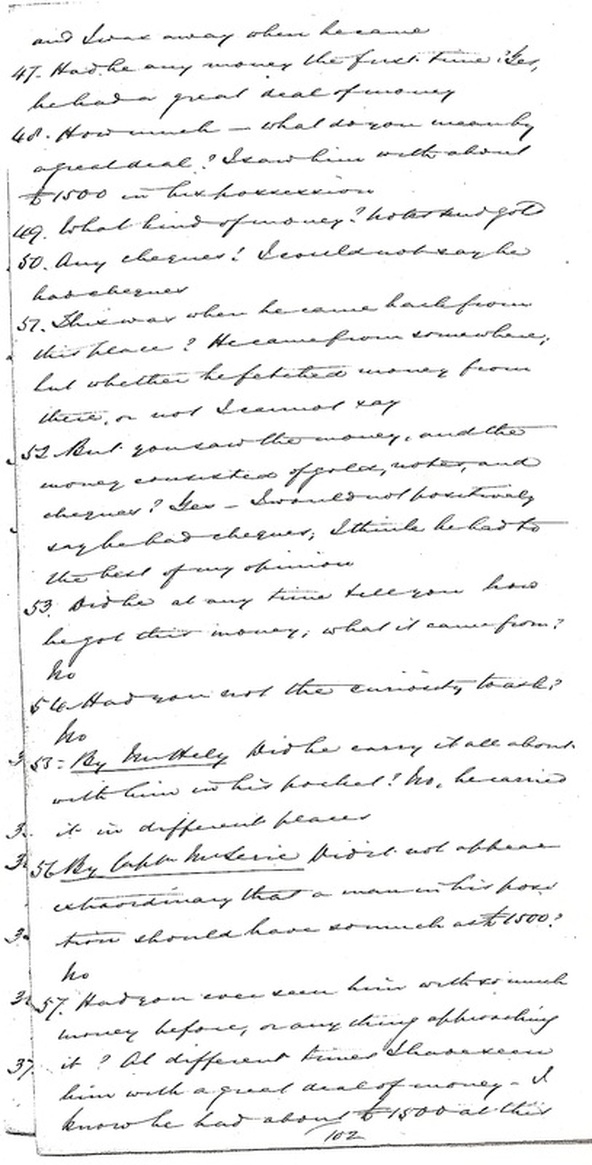 and I was away when he came
47. Had he any money the first time? Yes,
he had a great deal of money
48. How much — what do you mean by
a great deal? I saw him with about
£1500 in his possession
49. What kind of money? Notes and gold
50. Any cheques? I could not say he
had cheques
51. This was when he came back from
this place? He came from somewhere,
but whether he fetched money from
there, or not I cannot say
52 But you saw the money, and the
money consisted of gold, notes, and
cheques? Yes – I would not positively
say he had cheques; I think he had to
the best of my opinion
53. Did he at any time tell you how
he got this money; what it came from?
No
54 Had you not the curiosity to ask?
No
3 55- By Mr Hely Did he carry it all about
with him in his pocket? No, he carried
3. it in different places
3 56 By Captn Did it not appear
extraordinary that a man in his posi
3 tion should have so much as £1500?
No
3 57. Had you ever seen him with so much
money before, or anything approaching
37 it? At different times I have seen
him with a great deal of money – I
know he had about £1500 at this
102